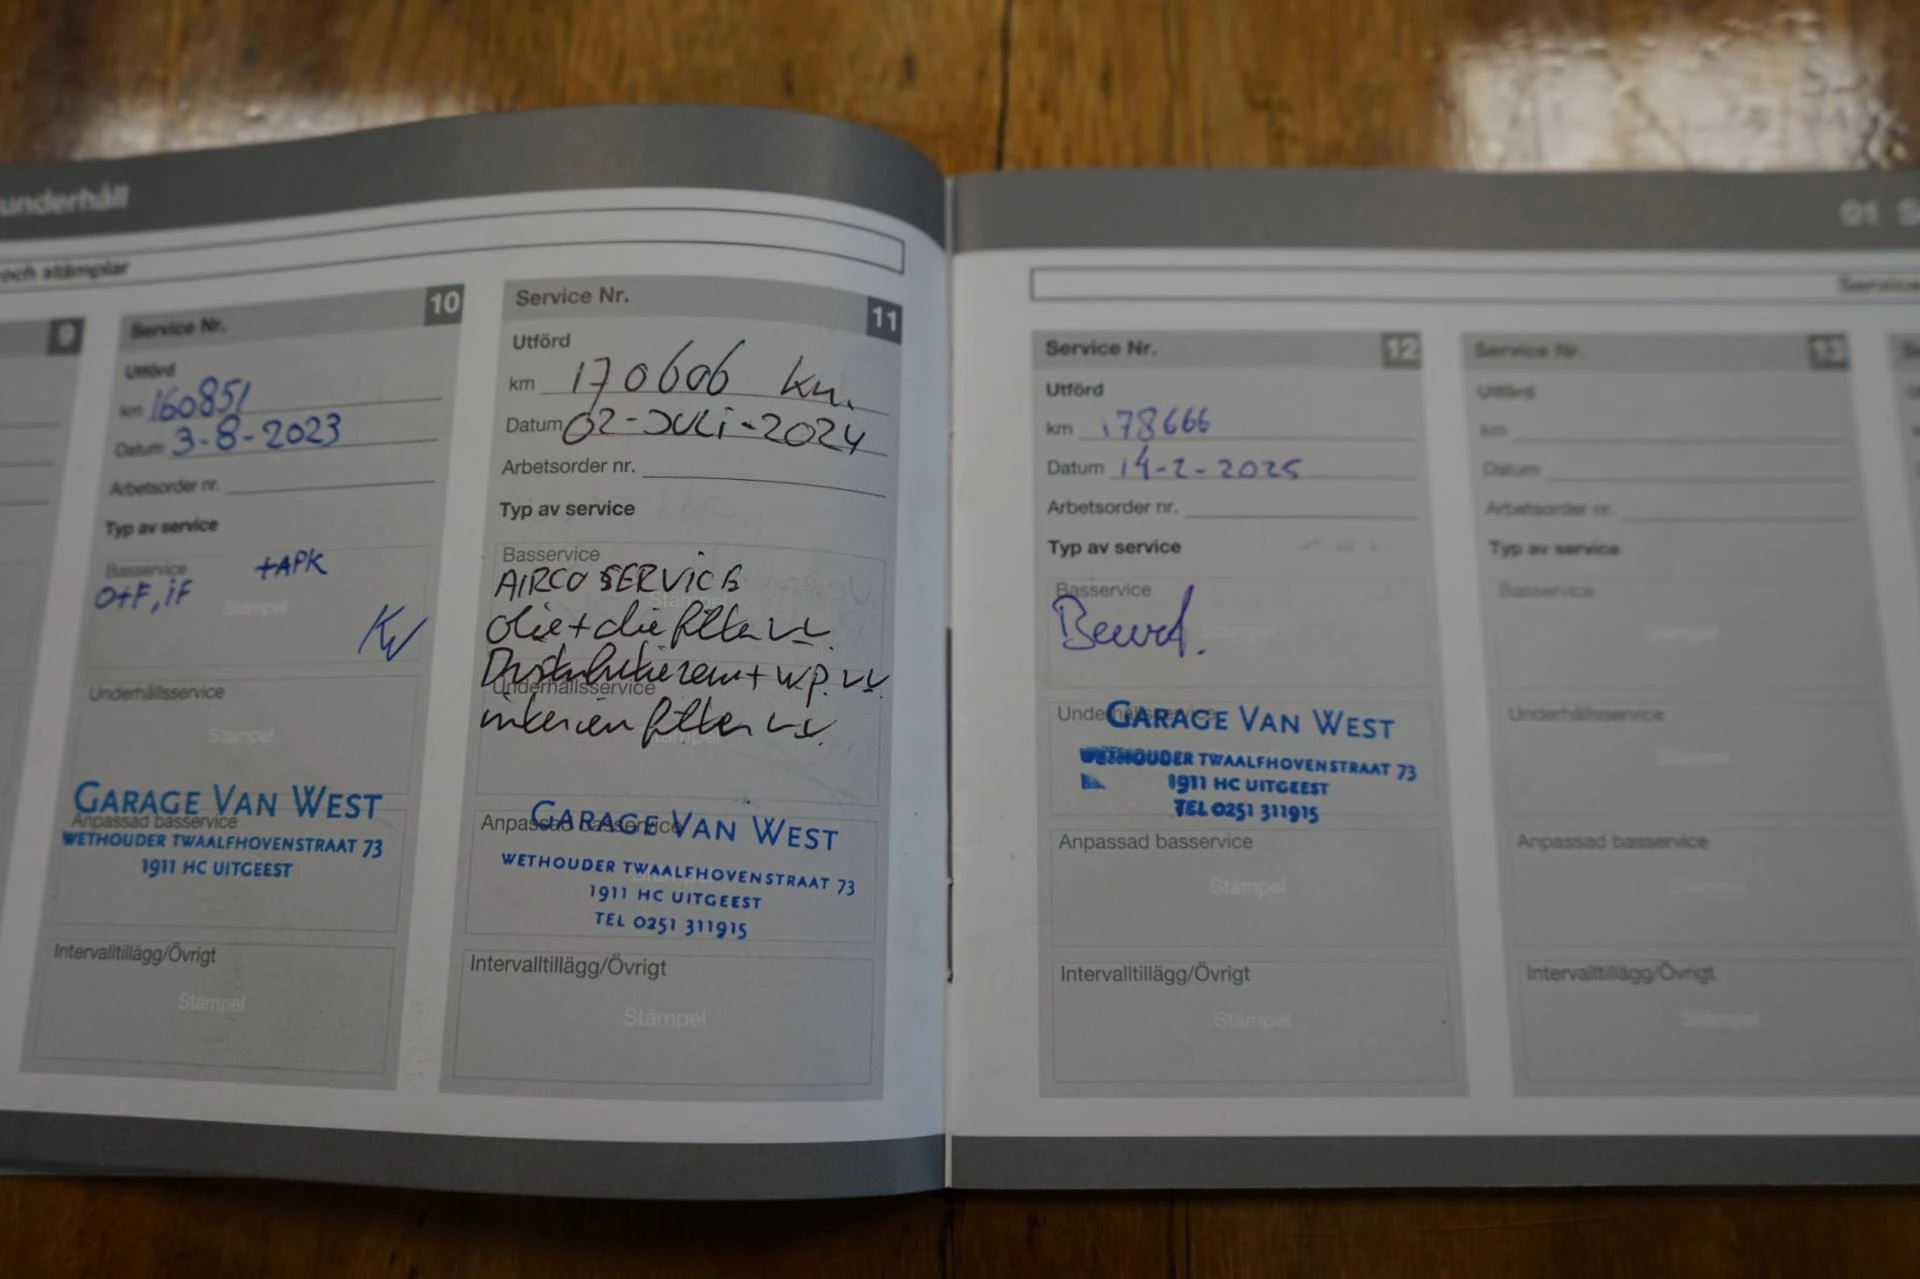 underhåll
och stämplar
9
Service Nr. 10
Utförd
km 160851
Datum 3-8-2023
Arbetsorder nr.
Typ av service
Basservice +APK
O+F, iF
Stämpel
KW
Underhållsservice
Stämpel
GARAGE VAN WEST
Anpassad basservice
WETHOUDER TWAALFHOVENSTRAAT 73
1911 HC UITGEEST
Intervalltillägg/Övrigt
Stämpel
Service Nr. 11
Utförd
km 170606 km.
Datum 02-JULI-2024
Arbetsorder nr.
Typ av service
Basservice
AIRCO SERVICE
Stämpel
olie + olie filter
Distributieriem + W.P.
Underhållsservice
interieur filter
Stämpel
Anpassad basservice
GARAGE VAN WEST
WETHOUDER TWAALFHOVENSTRAAT 73
1911 HC UITGEEST
TEL 0251 311915
Intervalltillägg/Övrigt
Stämpel
01 S
Service
Service Nr. 12
Utförd
km 178666
Datum 14-2-2025
Arbetsorder nr.
Typ av service
Basservice
Stämpel
Underhållsservice
GARAGE VAN WEST
WETHOUDER TWAALFHOVENSTRAAT 73
1911 HC UITGEEST
TEL 0251 311915
Anpassad basservice
Stämpel
Intervalltillägg/Övrigt
Stämpel
Service Nr. 13
Utförd
km
Datum
Arbetsorder nr.
Typ av service
Basservice
Stämpel
Underhållsservice
Stämpel
Anpassad basservice
Stämpel
Intervalltillägg/Övrigt
Stämpel